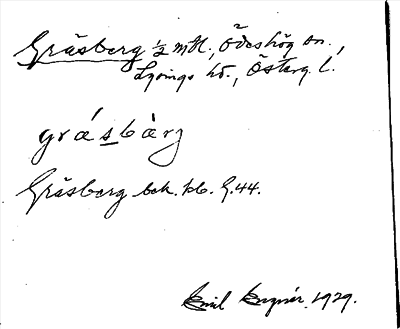 Gråsberg ½ mtl., Ödeshög sn.,
Lysings hd., Österg. l.
gråsbärg
Gråsberg bek. kb. G.44.
Emil 1929.